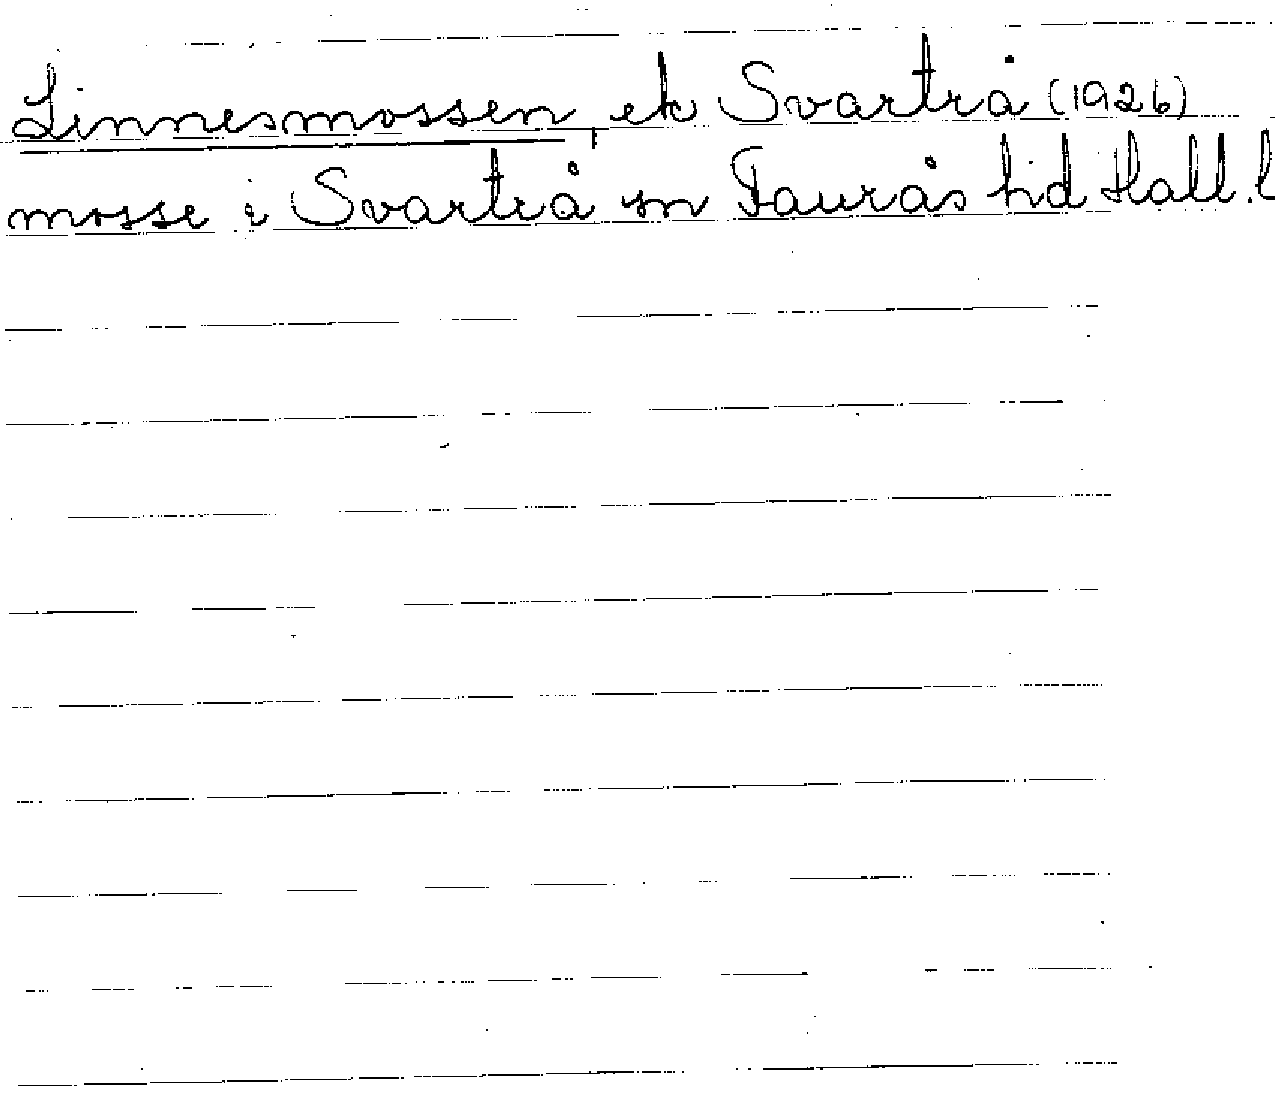 Linnesmossen, ek Svartrå (1926)
mosse i Svartrå sn Faurås hd Hall. l